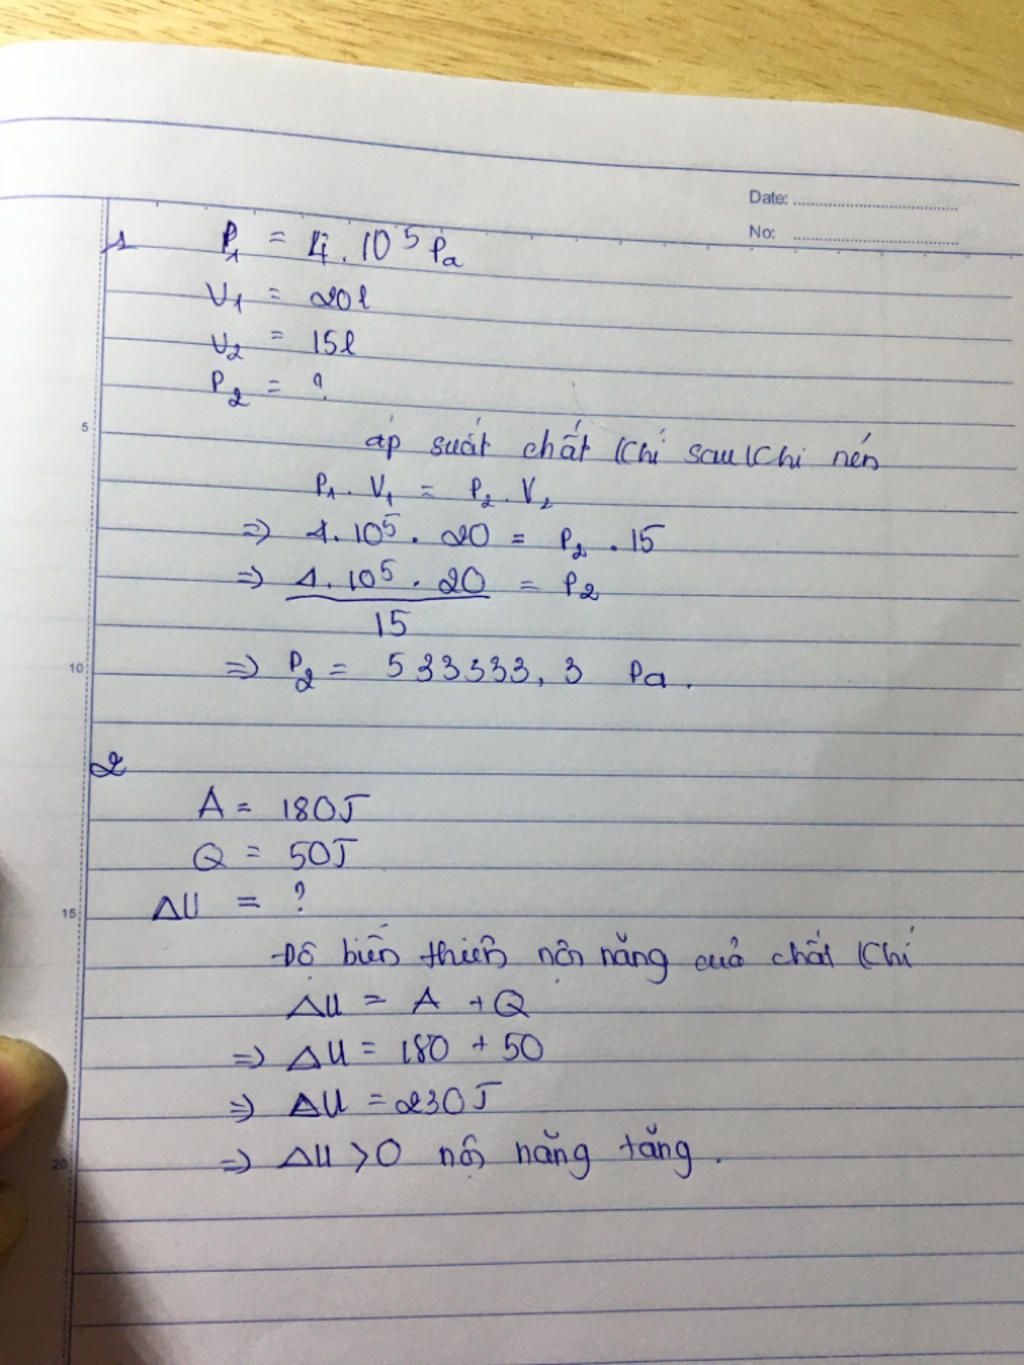 Date:
No:
1 P₁ = 4.10⁵ Pa
V₁ = 20l
V₂ = 15l
P₂ = ?
5
áp suất chất khí sau khi nén
P₁. V₁ = P₂. V₂
=> 4.10⁵. 20 = P₂. 15
=> 4.10⁵. 20 = P₂
15
10
=> P₂ = 533333,3 Pa.
2
A = 180J
Q = 50J
ΔU = ?
15
Độ biến thiên nội năng của chất khí
ΔU = A + Q
=> ΔU = 180 + 50
=> ΔU = 230J
=> ΔU > 0 nội năng tăng.
20